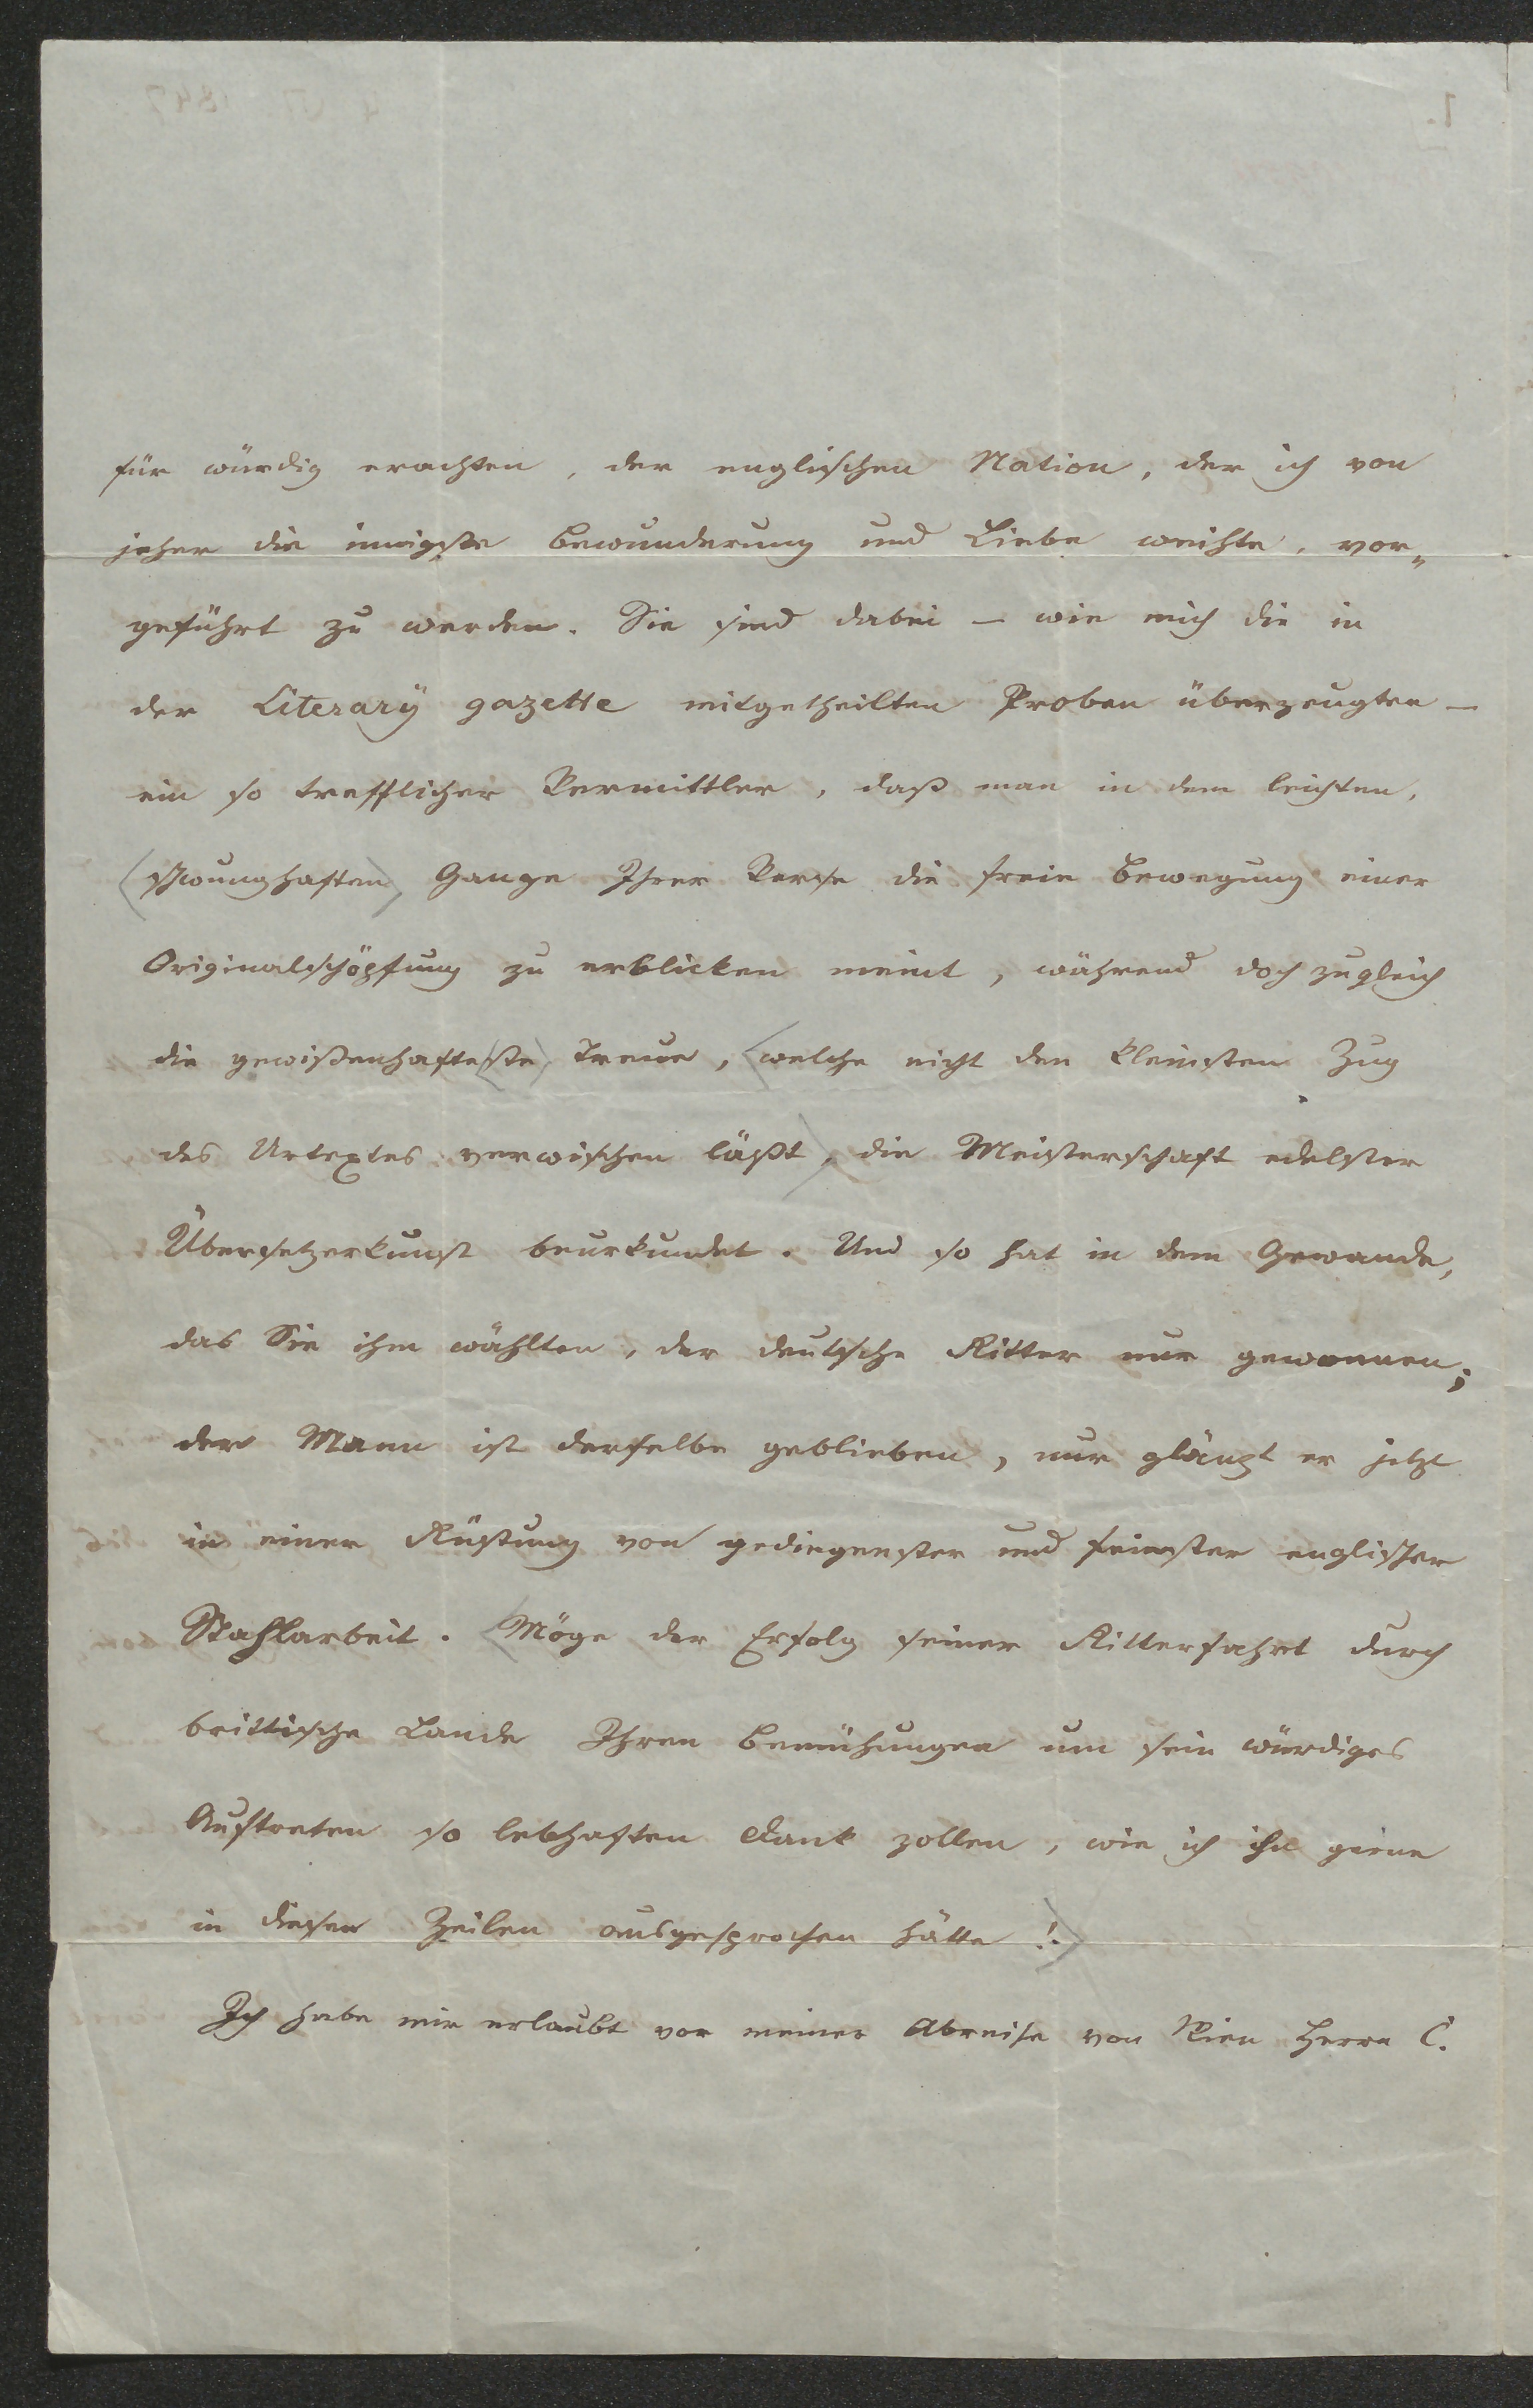 für würdig erachten, der englischen Nation, der ich von
jeher die innigste Bewunderung und Liebe weihte, vor„
geführt zu werden. Sie sind dabei – wie mich die in
der Literary gazette mitgetheilten Proben überzeugten –
ein so trefflicher Vermittler, daß man in dem leichten,
(schwunghaften) Gange Ihrer Verse die freie Bewegung einer
Originalschöpfung zu erblicken meint, während doch zugleich
die gewißenhafte(ste) Treue, (welche nicht den kleinsten Zug
des Urtextes verwischen läßt), die Meisterschaft edelster
Übersetzerkunst beurkundet. Und so hat in dem Gewande,
das Sie ihm wählten, der deutsche Ritter nur gewonnen;
der Mann ist derselbe geblieben, nur glänzt er jetzt
in einer Rüstung von gediegenster und feinster englischer
Stahlarbeit. (Möge der Erfolg seiner Ritterfahrt durch
brittische Lande Ihren Bemühungen um sein würdiges
Auftreten so lebhaften Dank zollen, wie ich ihn gerne
in diesen Zeilen ausgesprochen hätte!)
Ich habe mir erlaubt vor meiner Abreise von Wien Herrn C.